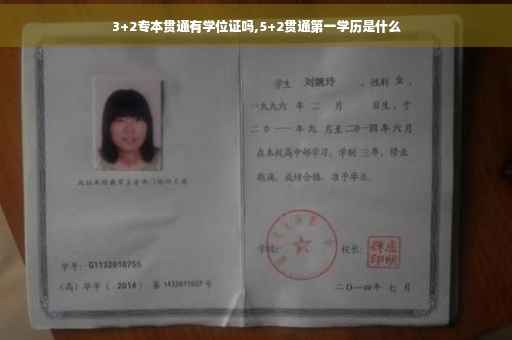 3+2专本贯通有学位证吗,5+2贯通第一学历是什么
学生 刘婉玲 ,性别 女 ,
一九九六 年 二 月 日生,于
二〇一一年九 月至二〇一四年六月
在本校高中部学习,学制 三年,修业
期满,成绩合格,准予毕业。
学号: G1132010755
(高)毕字( 2014 )第 1432011607 号
学校:
校长:
二〇一四年 七 月